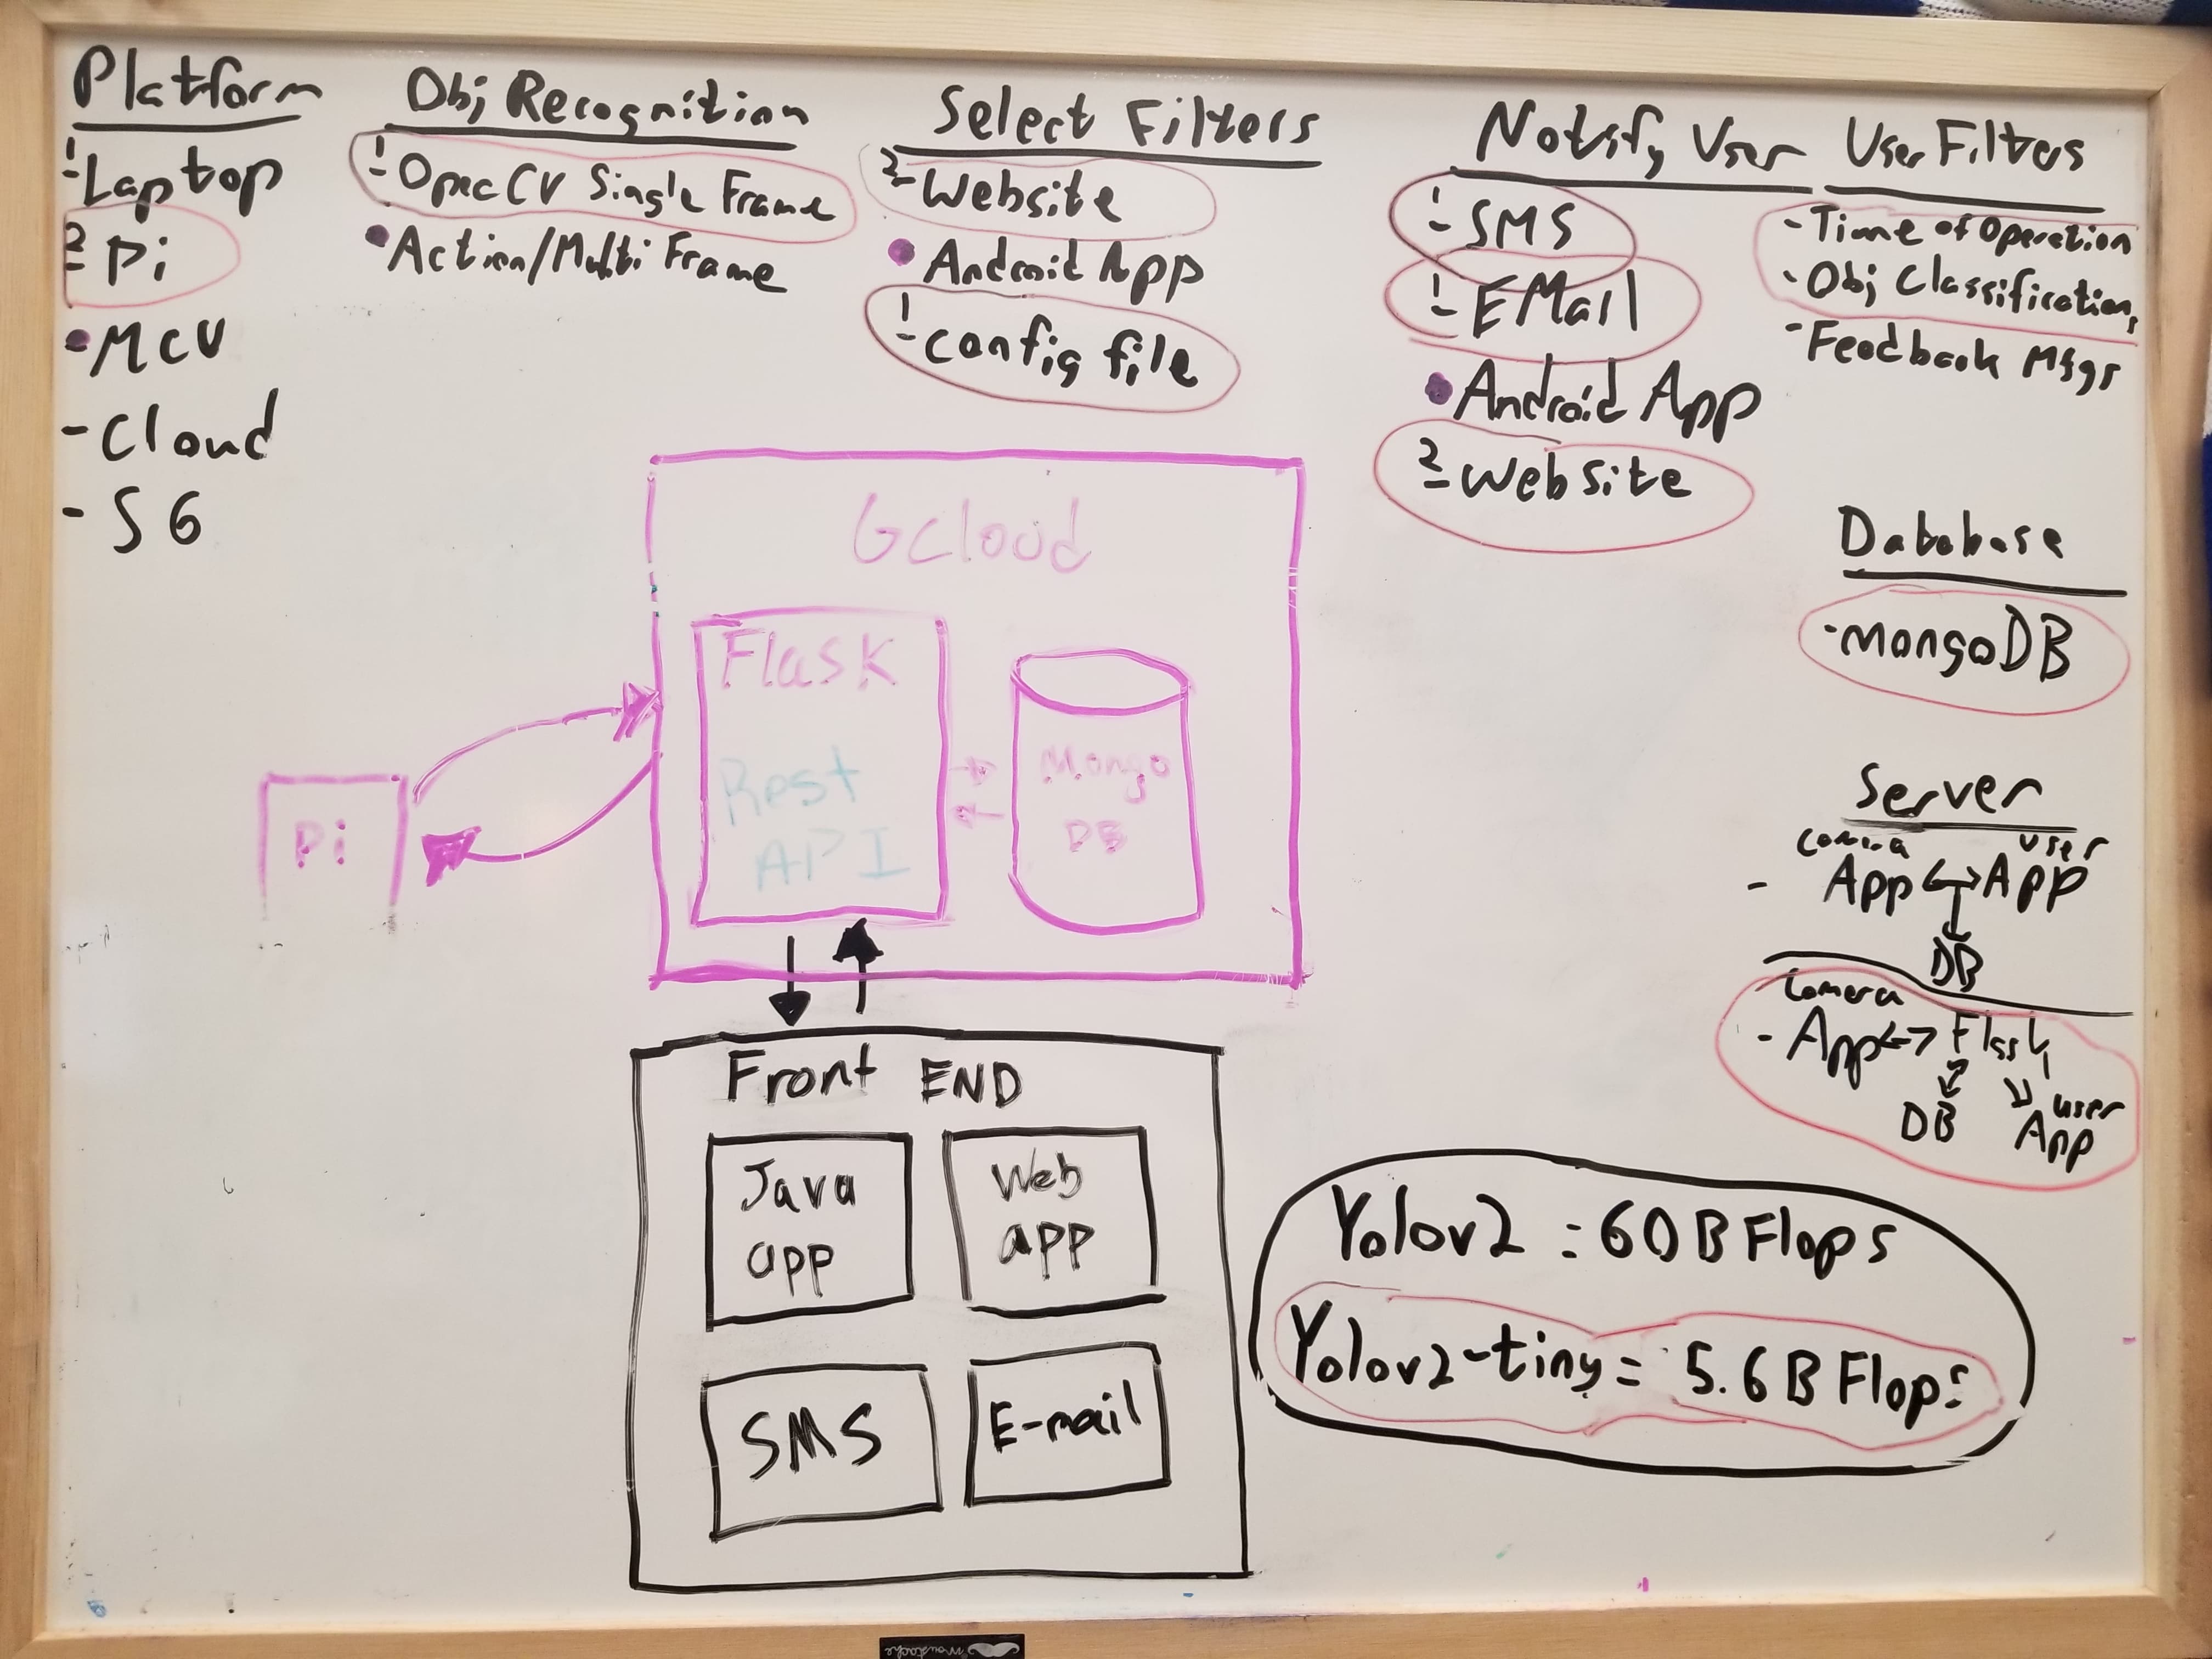 Platform
1 - Laptop
2 - Pi
- MCU
- Cloud
- S6
Obj Recognition
1 - OpenCV Single Frame
- Action/Multi Frame
Select Filters
2 - Website
- Android App
1 - config file
Notify User
1 - SMS
1 - EMail
- Android App
2 - Website
User Filters
- Time of Operation
- Obj Classifications
- Feedback Msgs
Database
- MongoDB
Server
Camera User
- App <-> App
DB
Camera
- App <-> Flask
DB
User
App
GCloud
Flask
Rest
API
Mongo
DB
Pi
Front END
Java
app
Web
app
SMS
E-mail
Yolov2 = 60 B Flops
Yolov2-tiny = 5.6 B Flops
moustache